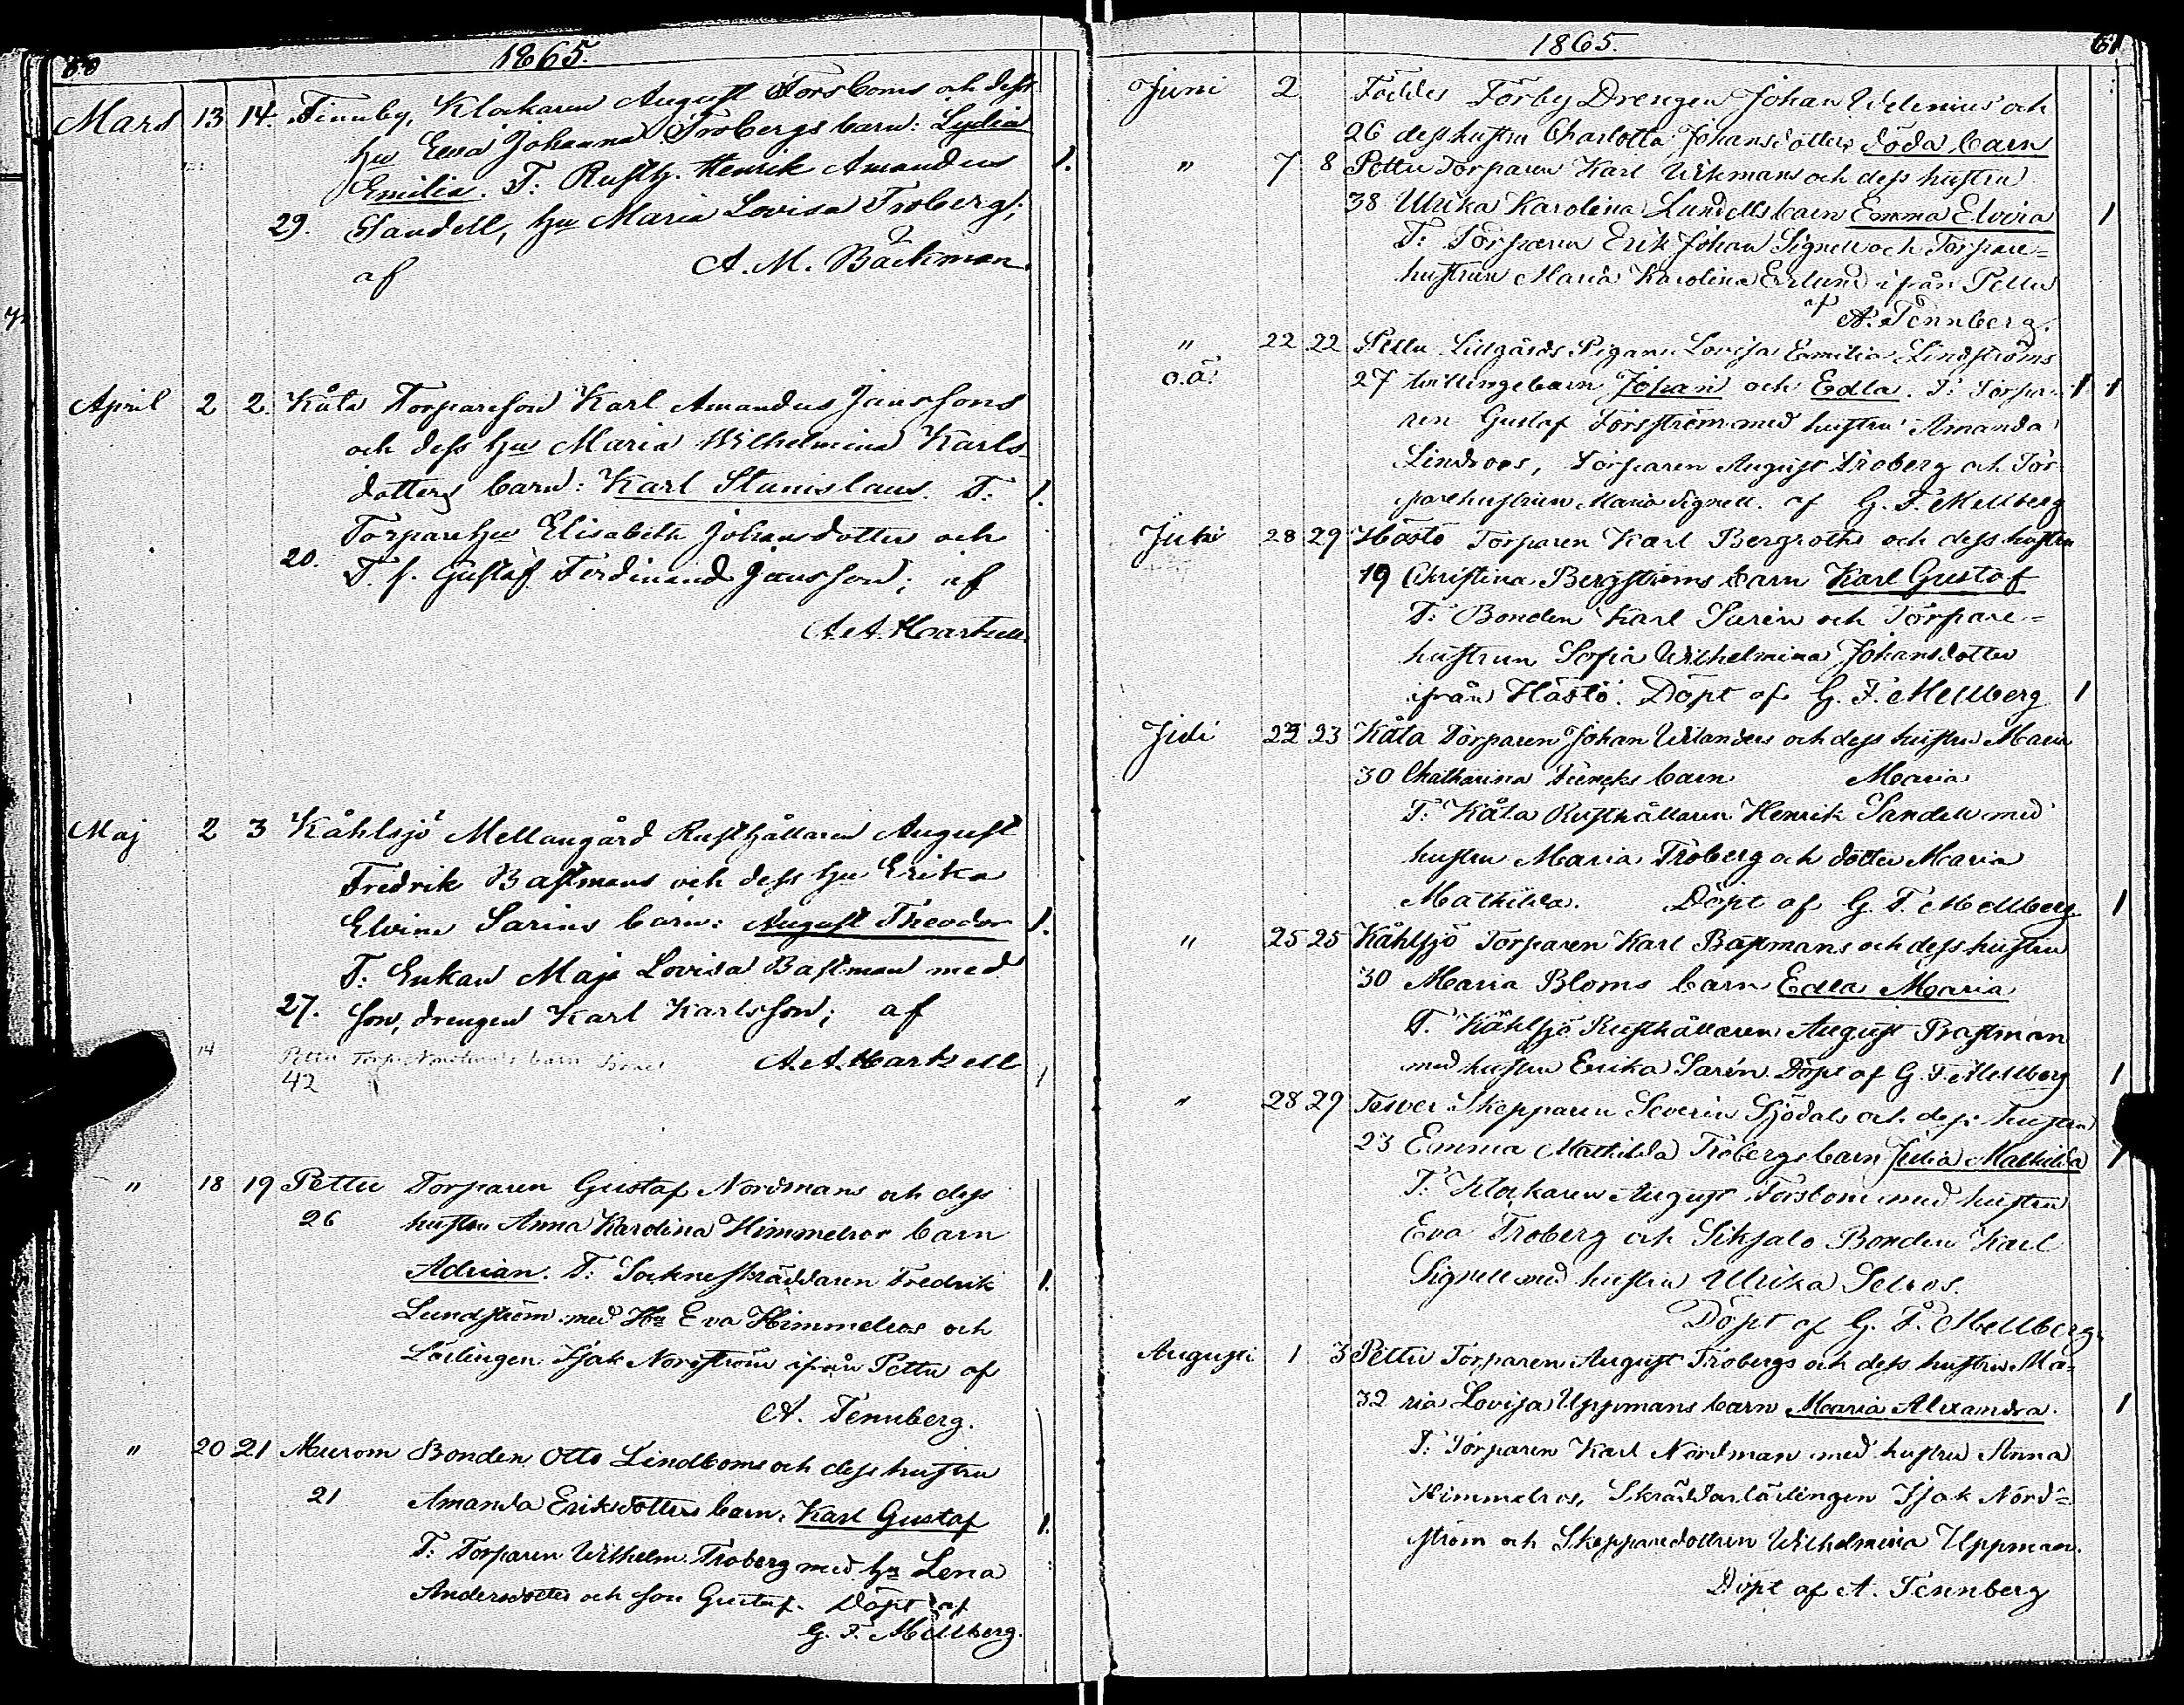 60
1865.
Mars 13 14. Finnby, Klockaren August Forsboms och dess
hu Eva Johanna Frobergs barn: Lydia
Emilia. F: Rusth. Henrik Amandus 1.
29. Sandell, hu Maria Lovisa Froberg;
af A. M. Bäckman.
April 2 2. Kåla Torparesson Karl Amandus Janssons
och dess hu Maria Wilhelmina Karls-
dotters barn: Karl Stanislaus. F: 1.
Torparehu Elisabeth Johansdotter och
20. T. s. Gustaf Ferdinand Jansson; af
A. A. Hartzell.
Maj 2 3 Kåhlsjö Mellangård Rusthållaren August
Fredrik Bastmans och dess hu Erika
Elvine Sarins barn: August Theodor 1.
F: Enkan Maja Lovisa Bastman med
27. son, drengen Karl Karlsson; af
14 Pettu barn A. A. Hartzell 1
42
" 18 19 Pettu Torparen Gustaf Nordmans och dess
26 hustru Anna Karolina Himmelros barn
Adrian. F: Sockneskräddaren Fredrik 1.
Lundström med Hu Eva Himmelros och
Lärlingen Isak Nordström ifrån Pettu af
A. Tennberg.
" 20 21 Murom Bonden Otto Lindboms och dess hustru
21 Amanda Eriksdotters barn: Karl Gustaf 1.
F: Torparen Wilhelm Froberg med hu Lena
Andersdotter och son Gustaf. Döpt af
G. F. Mellberg.
1865. 61
Juni 2 Föddes Förby Drengen Johan Welenius och
26 dess hustru Charlotta Johansdotters döda barn
" 7 8 Pettu Torparen Karl Wikmans och dess hustru
38 Ulrika Karolina Lundells barn Emma Elvira 1
F: Torparen Erik Johan Signell och Torpare=
hustrun Maria Karolina Enlund ifrån Pettu
af
A. Tennberg.
" 22 22 Pettu Lillgårds Pigan Lovisa Emilia Lindströms
o.ä. 27 tvillingebarn Johan och Edla. F: Torpa- 1 1
ren Gustaf Forsström med hustru Amanda
Lindroos, Torparen August Froberg och Tor
parehustrun Maria Signell. af G. F. Mellberg
Juni 28 29 Hästö Torparen Karl Bergroths och dess hustru
19 Christina Bergströms barn Karl Gustaf
F: Bonden Karl Sarin och Torpare=
hustrun Sofia Wilhelmina Johansdotter
ifrån Hästö. Döpt af G. F. Mellberg 1
Juli 22 23 Kåla Torparen Johan Wilanders och dess hustru Maria
30 Chatharina barn Maria
F: Kåla Rusthållaren Henrik Sandell med
hustru Maria Froberg och dotter Maria
Mathilda. Döpt af G. F. Mellberg. 1
" 25 25 Kåhlsjö Torparen Karl Bastmans och dess hustru
30 Maria Bloms barn Edla Maria
F. Kåhlsjö Rusthållaren August Bastman
med hustru Erika Sarin. Döpt af G. F. Mellberg 1
" 28 29 Tesver Skepparen Severin Sjödals och dess hustru
23 Emma Mathilda Frobergs barn Julia Mathilda 1
F: Klockaren August Forsbom med hustru
Eva Froberg och Siksalo Bonden Karl
Signell med hustru Ulrika Selros.
Döpt af G. F. Mellberg.
Augusti 1 3 Pettu Torparen August Frobergs och dess hustru Ma=
32 ria Lovisa Uppmans barn Maria Alexandra. 1
F: Torparen Karl Nordman med hustru Anna
Himmelros, Skräddarlärlingen Isak Nord=
ström och Skepparedottren Wilhelmina Uppman.
Döpt af A. Tennberg